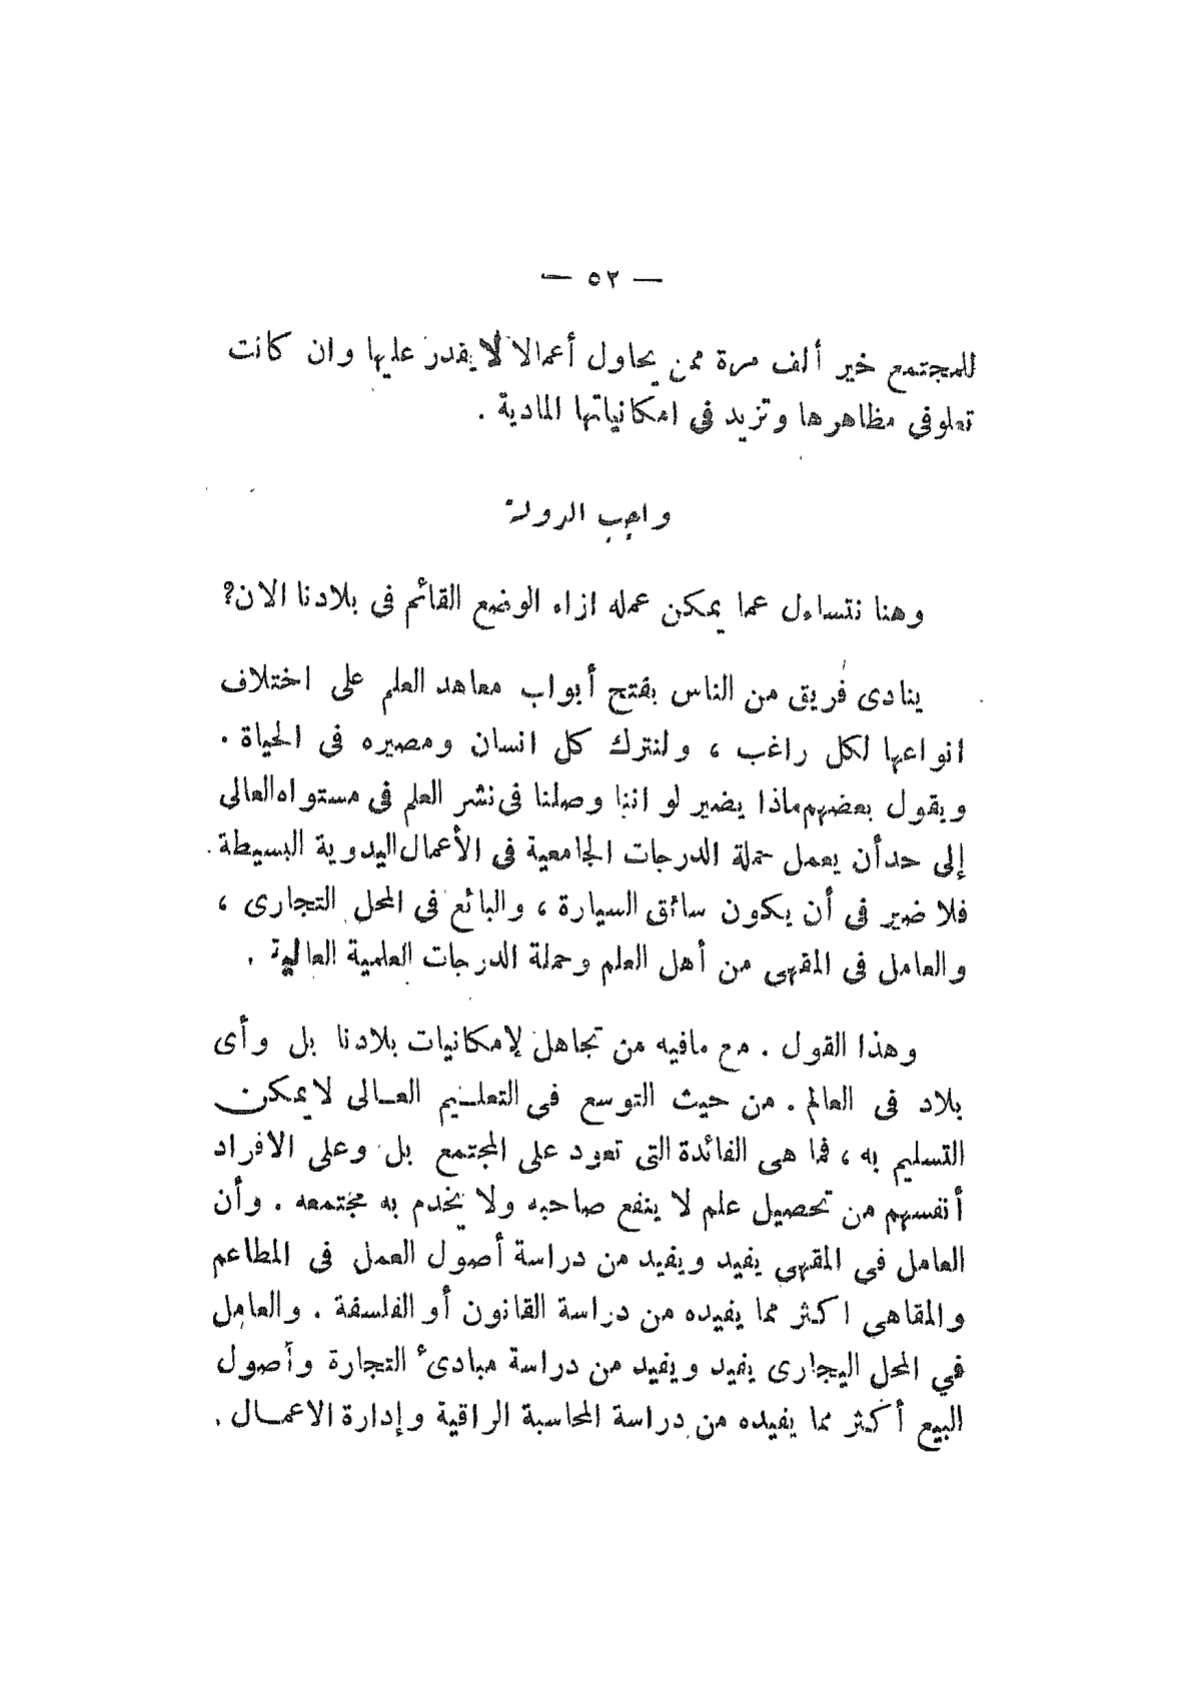 — ٥٢ —
للمجتمع خير ألف مرة ممن يحاول أعمالا لا يقدر عليها وان كانت
تعلوفى مظاهرها وتزيد فى امكانياتها المادية .
واجب الدولة
وهنا نتساءل عما يمكن عمله ازاء الوضع القائم فى بلادنا الان؟
ينادى فريق من الناس بفتح أبواب معاهد العلم على اختلاف
انواعها لكل راغب ، ولنترك كل انسان ومصيره فى الحياة .
ويقول بعضهم ماذا يضير لو اننا وصلنا فى نشر العلم فى مستواه العالى
إلى حد أن يعمل حملة الدرجات الجامعية فى الأعمال اليدوية البسيطة .
فلا ضير فى أن يكون سائق السيارة ، والبائع فى المحل التجارى ،
والعامل فى المقهى من أهل العلم وحملة الدرجات العلمية العالية .
وهذا القول . مع مافيه من تجاهل لإمكانيات بلادنا بل وأى
بلاد فى العالم . من حيث التوسع فى التعليم العالى لا يمكن
التسليم به ، فما هى الفائدة التى تعود على المجتمع بل وعلى الافراد
أنفسهم من تحصيل علم لا ينفع صاحبه ولا يخدم به مجتمعه . وأن
العامل فى المقهى يفيد ويفيد من دراسة أصول العمل فى المطاعم
والمقاهى اكثر مما يفيده من دراسة القانون أو الفلسفة . والعامل
في المحل التجارى يفيد ويفيد من دراسة مبادىء التجارة وأصول
البيع أكثر مما يفيده من دراسة المحاسبة الراقية وإدارة الاعمال .